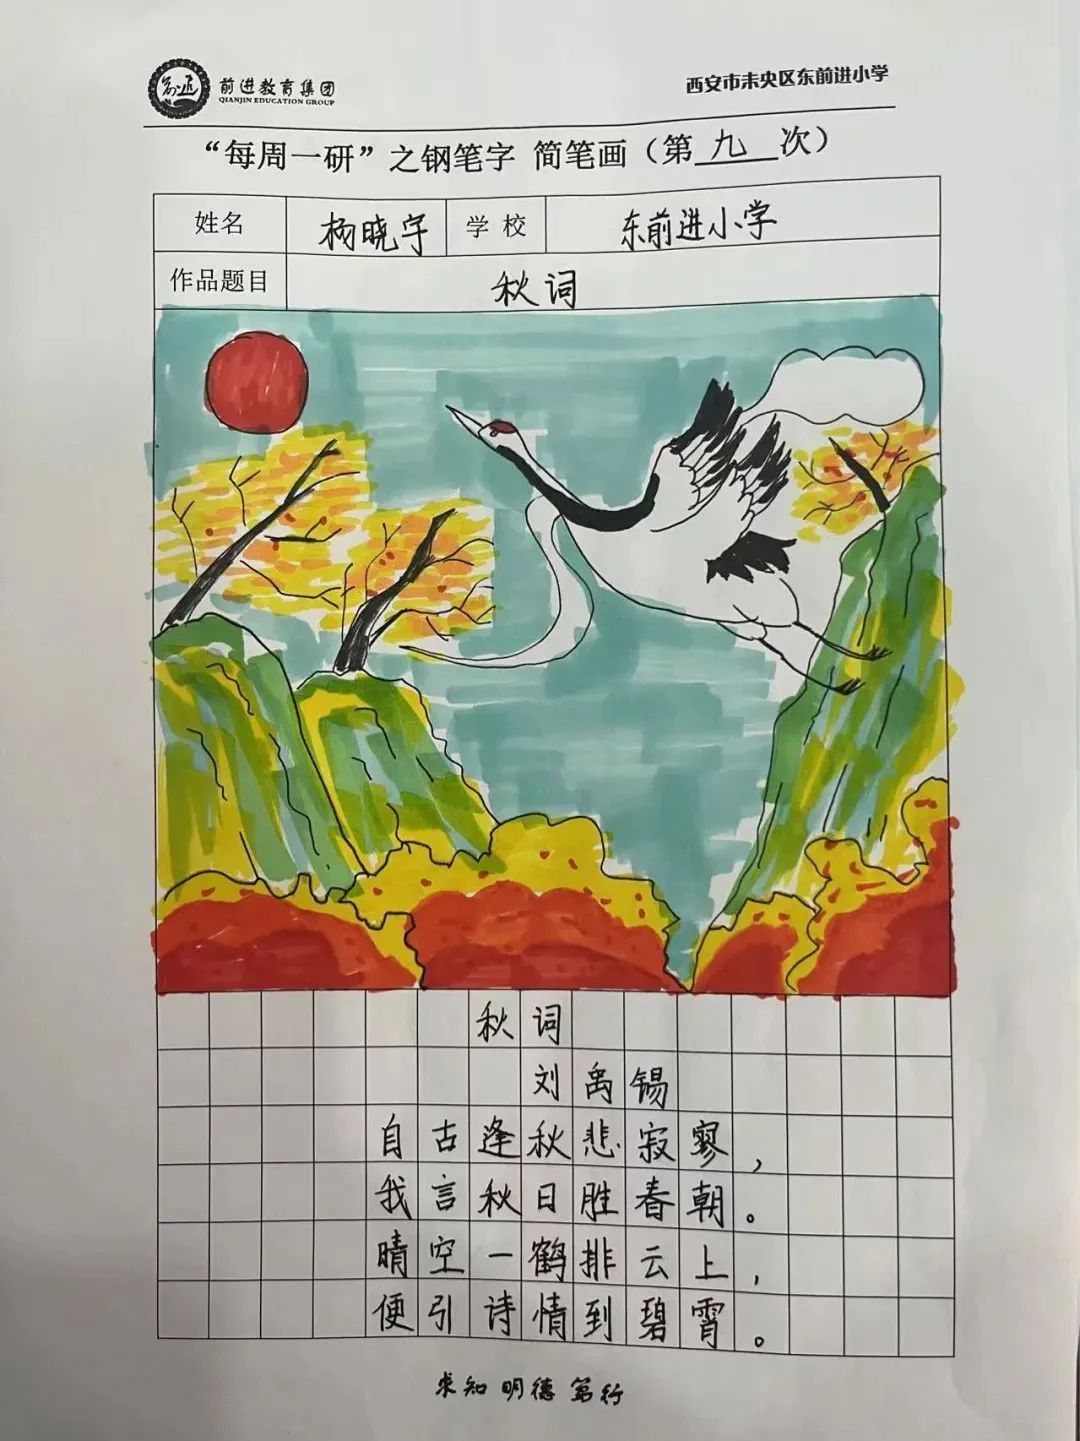 前进教育集团
QIANJIN EDUCATION GROUP
西安市未央区东前进小学
“每周一研”之钢笔字 简笔画（第九次）
姓名 杨晓宇 学校 东前进小学
作品题目 秋词
秋词
刘禹锡
自古逢秋悲寂寥，
我言秋日胜春朝。
晴空一鹤排云上，
便引诗情到碧霄。
求知 明德 笃行